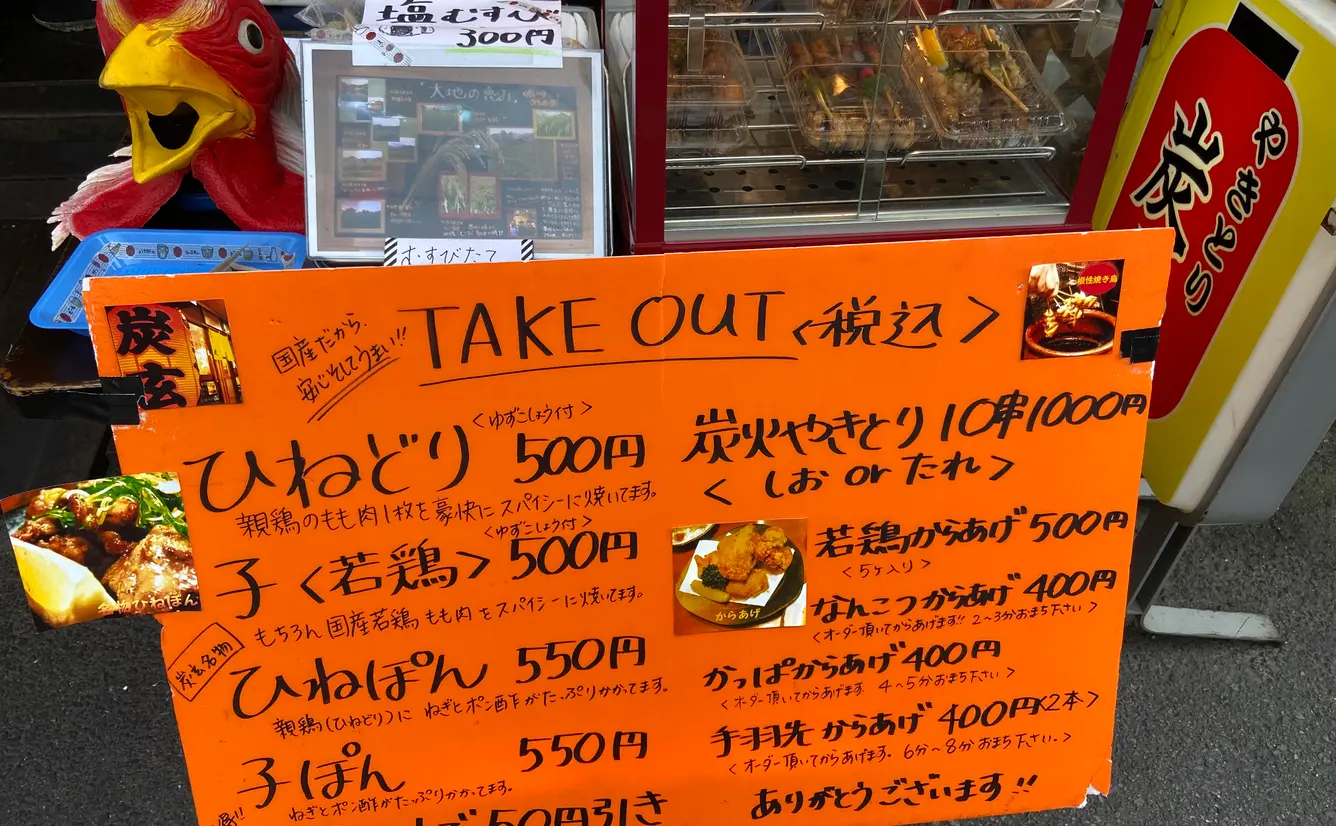 塩むすび
300円
"大地の恵み"
むすびたて
やきとり
炭
炭
玄
国産だから、
安心そしてうまい!!
TAKE OUT <税込>
根性焼き鳥
<ゆずこしょう付>
ひねどり 500円
親鶏のもも肉1枚を豪快にスパイシーに焼いてます。
<ゆずこしょう付>
子<若鶏> 500円
もちろん国産若鶏もも肉をスパイシーに焼いてます。
名物ひねぽん
炭玄名物
ひねぽん 550円
親鶏(ひねどり)に ねぎとポン酢がたっぷりかかってます。
子ぽん 550円
ねぎとポン酢がたっぷりかかってます。
50円引き
炭火やきとり 10串1000円
< しお or たれ >
からあげ
若鶏からあげ 500円
<5ヶ入り>
なんこつからあげ 400円
<オーダー頂いてからあげます!! 2~3分おまち下さい>
かっぱからあげ 400円
<オーダー頂いてからあげます。 4~5分おまち下さい>
手羽先からあげ 400円<2本>
<オーダー頂いてからあげます。 6分~8分おまち下さい。>
ありがとうございます!!